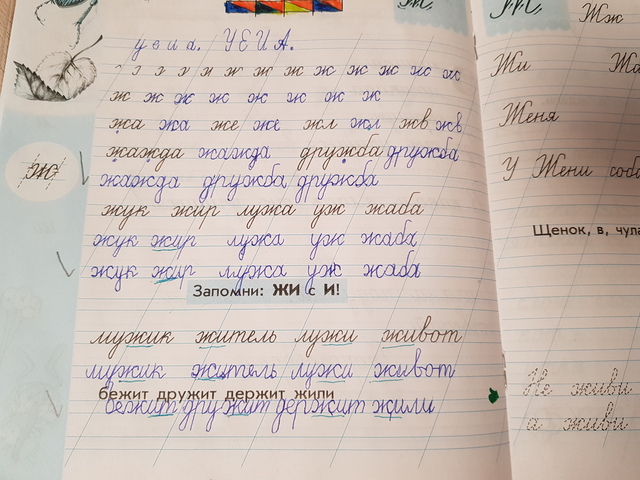 у е и а. У Е И А.
ж ж ж ж ж ж ж ж
ж ж ж ж ж ж ж ж
жа жа же же жл жл жв жв
жажда жажда дружба дружба
жажда дружба дружба
жук жир лужа уж жаба
жук жир лужа уж жаба
жук жир лужа уж жаба
Запомни: ЖИ с И!
мужик житель лужи живот
мужик житель лужи живот
бежит дружит держит жили
бежит дружит держит жили
Жж
Жи
Женя
У Жени
Щенок, в,
Не живи
а живи